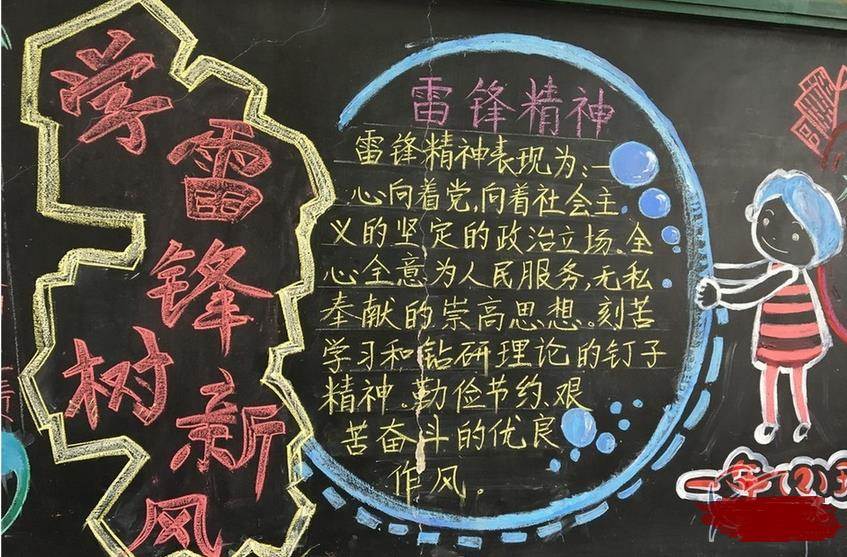 学雷锋
树新风
雷锋精神
雷锋精神表现为:一
心向着党,向着社会主
义的坚定的政治立场、全
心全意为人民服务,无私
奉献的崇高思想。刻苦
学习和钻研理论的钉子
精神、勤俭节约、艰
苦奋斗的优良
作风。